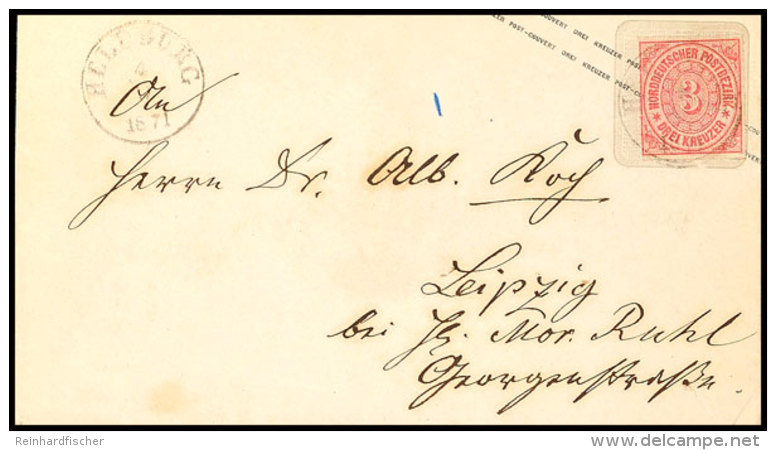 ER POST-COUVERT DREI KREUZER POST-COUVERT DREI KREUZER POST-
NORDDEUTSCHER POSTBEZIRK
3
* DREI KREUZER *
HELDBURG
4
1871
An
Herrn Dr. Alb. Koch
Leipzig
bei Hr. Mor. Ruhl
Georgenstraße.
Reinhardfischer
delcampe.net